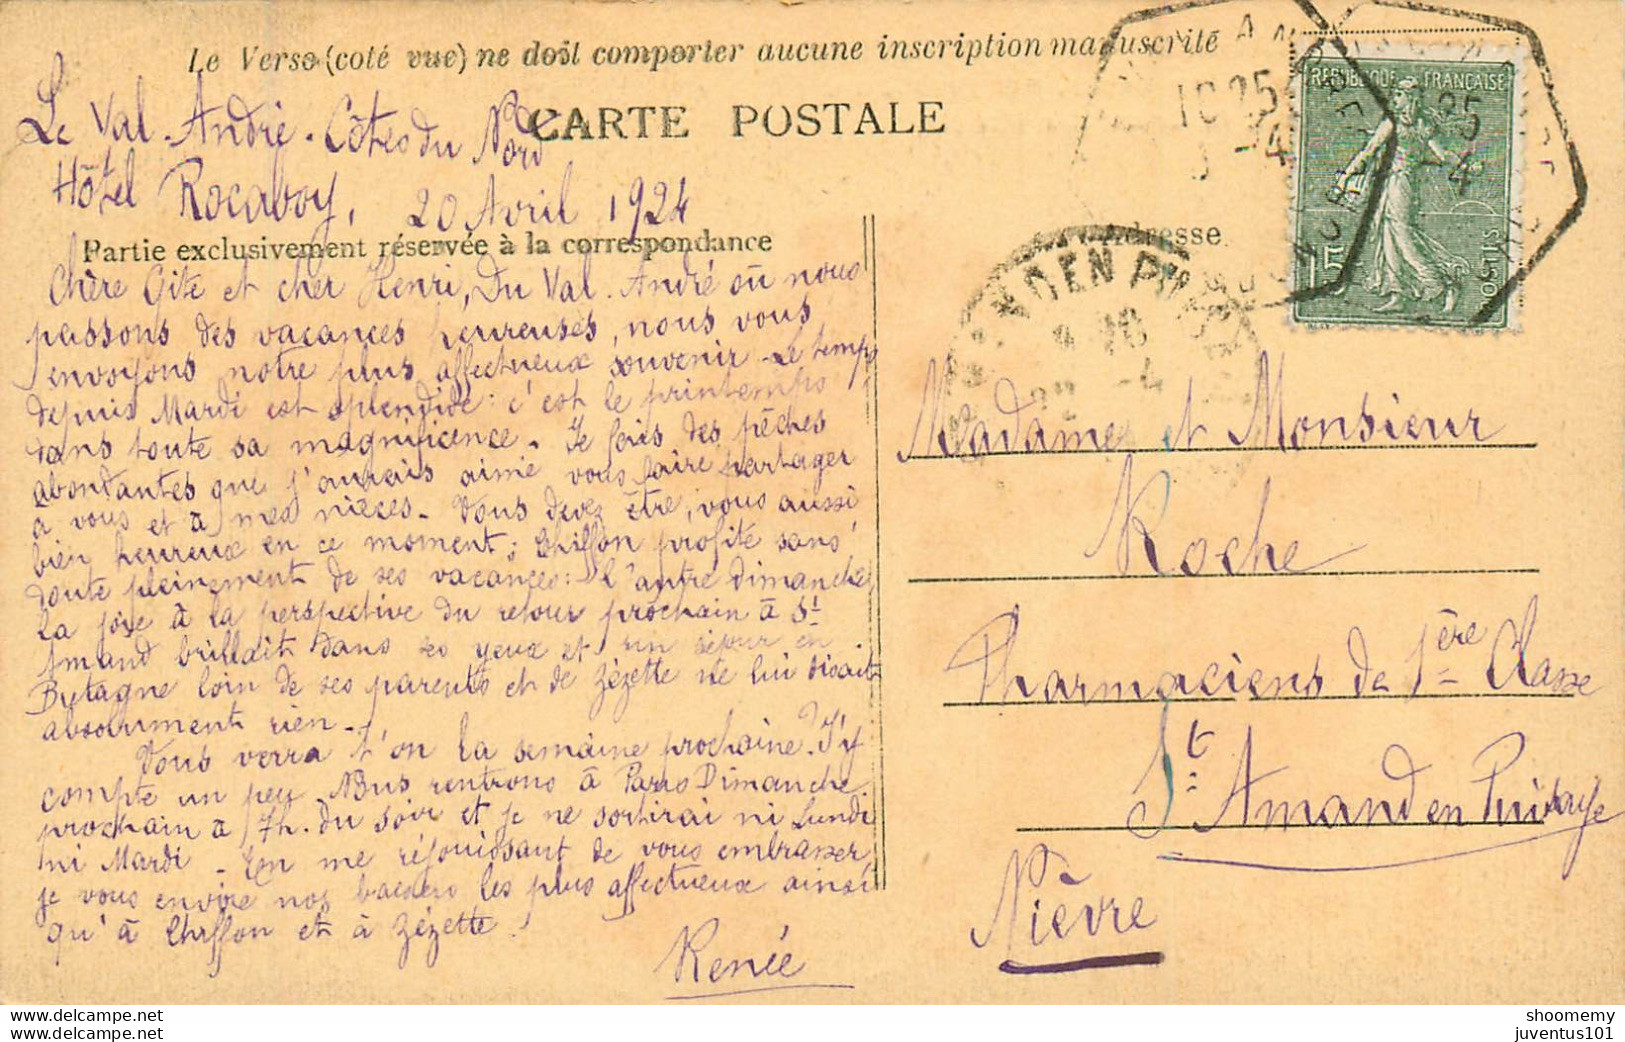 Le Verso (coté vue) ne doit comporter aucune inscription manuscrite
CARTE POSTALE
Le Val-André-Côtes du Nord
Hôtel Rocaboy, 20 Avril 1924
Partie exclusivement réservée à la correspondance
Chère Gite et cher Henri, Du Val-André où nous
passons des vacances heureuses, nous vous
envoyons notre plus affectueux souvenir - Le temps
depuis Mardi est splendide : c'est le printemps
dans toute sa magnificence. Je fais des pêches
abondantes que j'aurais aimé vous faire partager
à vous et à mes nièces. Vous devez être, vous aussi
bien heureux en ce moment ; Chiffon profite sans
doute pleinement de ses vacances : l'autre dimanche,
la joie à la perspective du retour prochain à St
Amand brillait dans ses yeux et un séjour en
Bretagne loin de ses parents et de Zézette ne lui disait
absolument rien -
Vous verra t'on la semaine prochaine ? J'y
compte un peu. Nous rentrons à Paris Dimanche
prochain à 7h. du soir et je ne sortirai ni Lundi
ni Mardi - En me réjouissant de vous embrasser,
je vous envoie nos baisers les plus affectueux ainsi
qu'à Chiffon et à Zézette.
Renée
Adresse
REPUBLIQUE FRANÇAISE
15
POSTES
10 25
-4
25
-4
Madame et Monsieur
Roche
Pharmaciens de 1ère Classe
St Amand en Puisaye
Nièvre
shoomemy
juventus101
shoomemy
juventus101